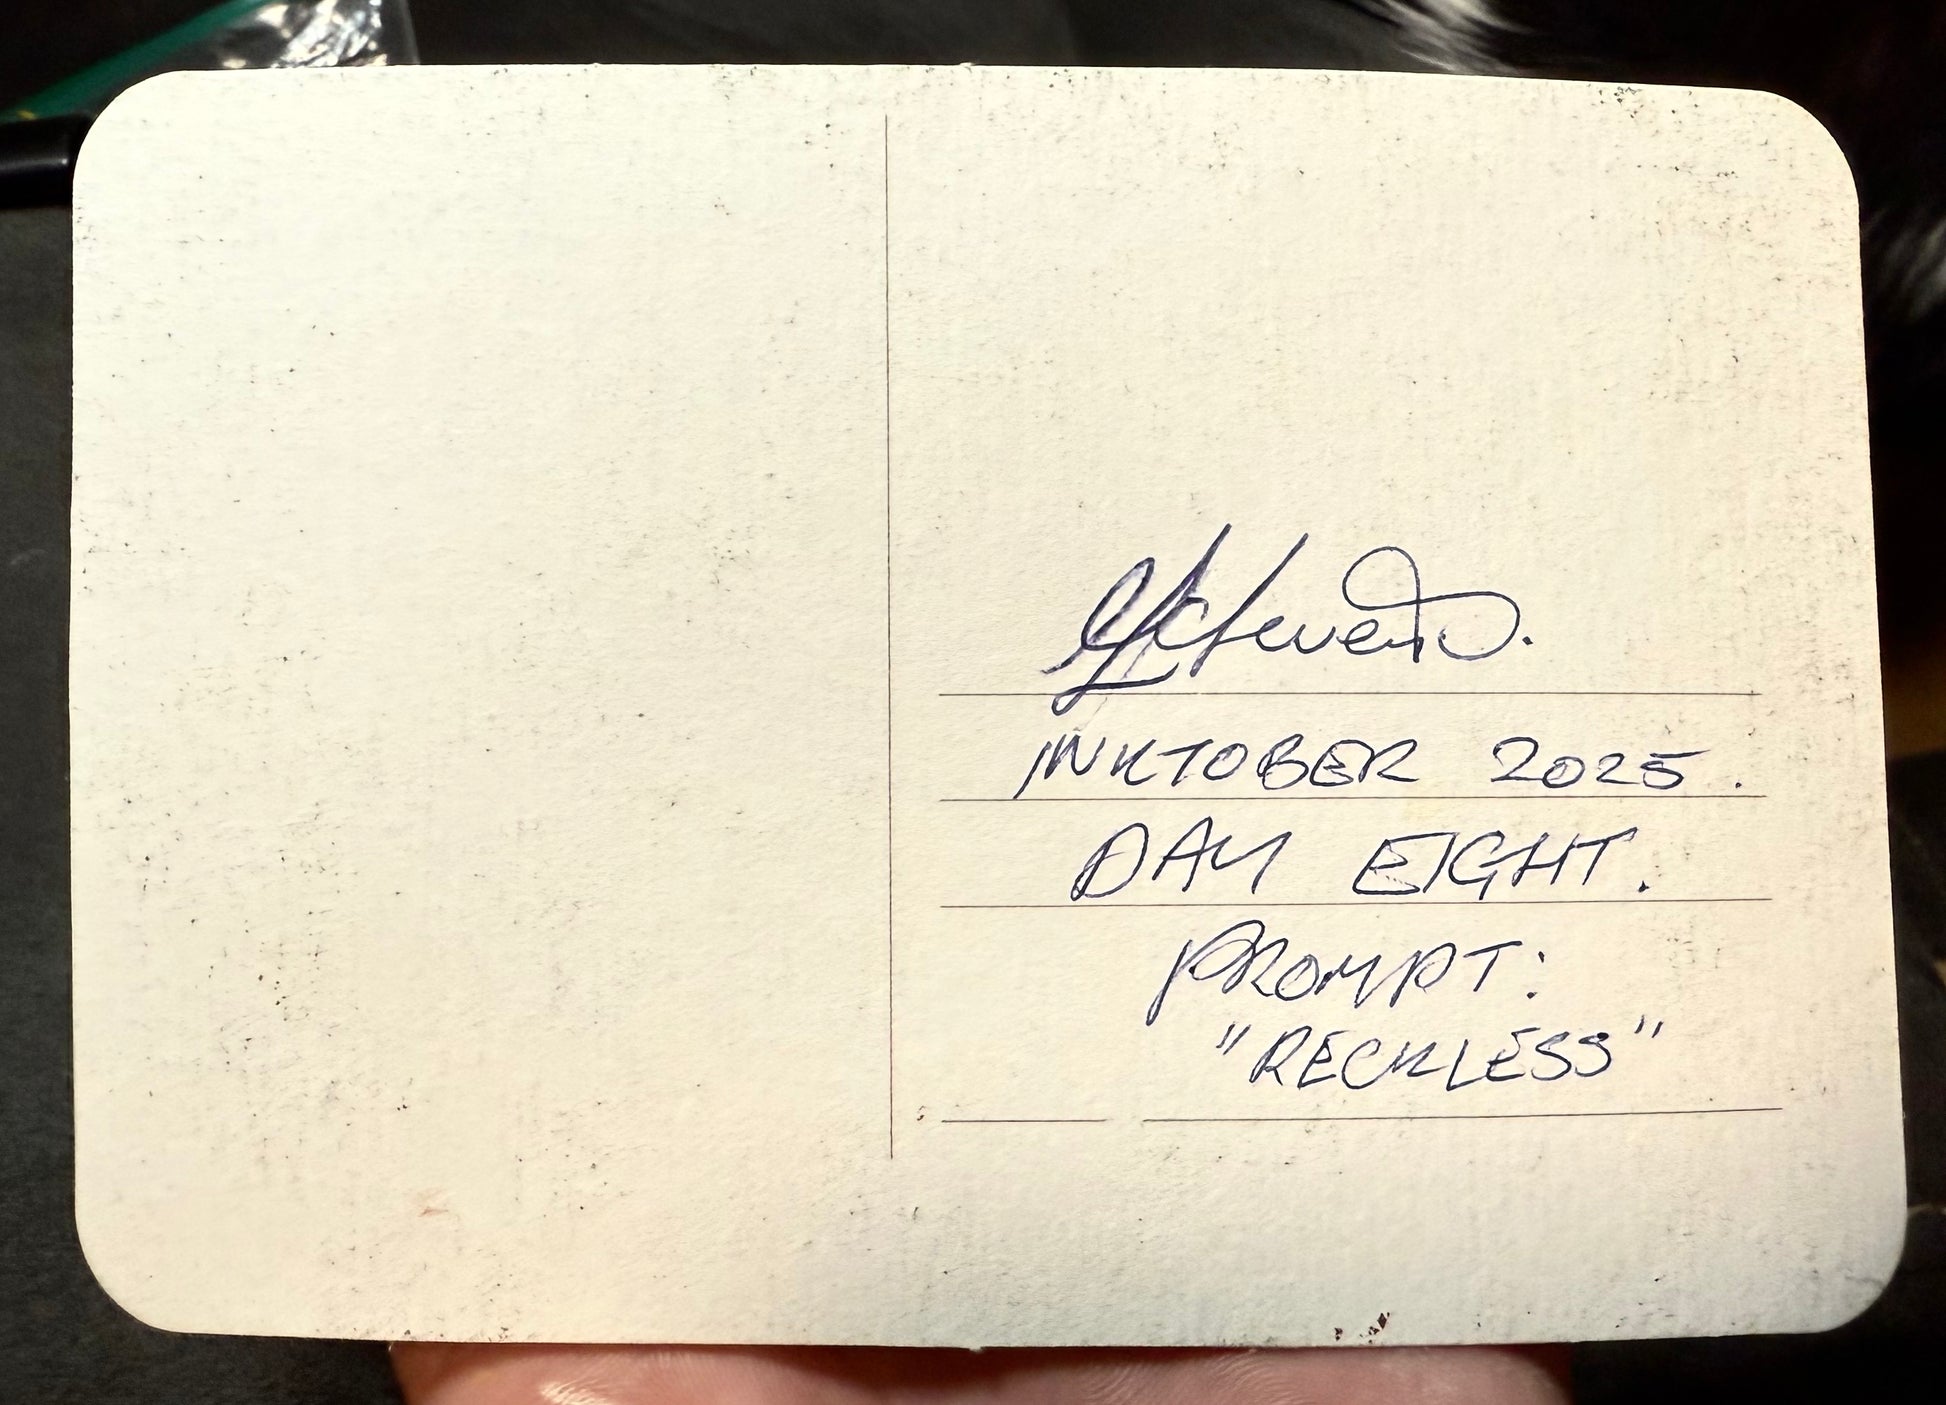 INKTOBER 2025.
DAY EIGHT.
PROMPT:
"RECKLESS"